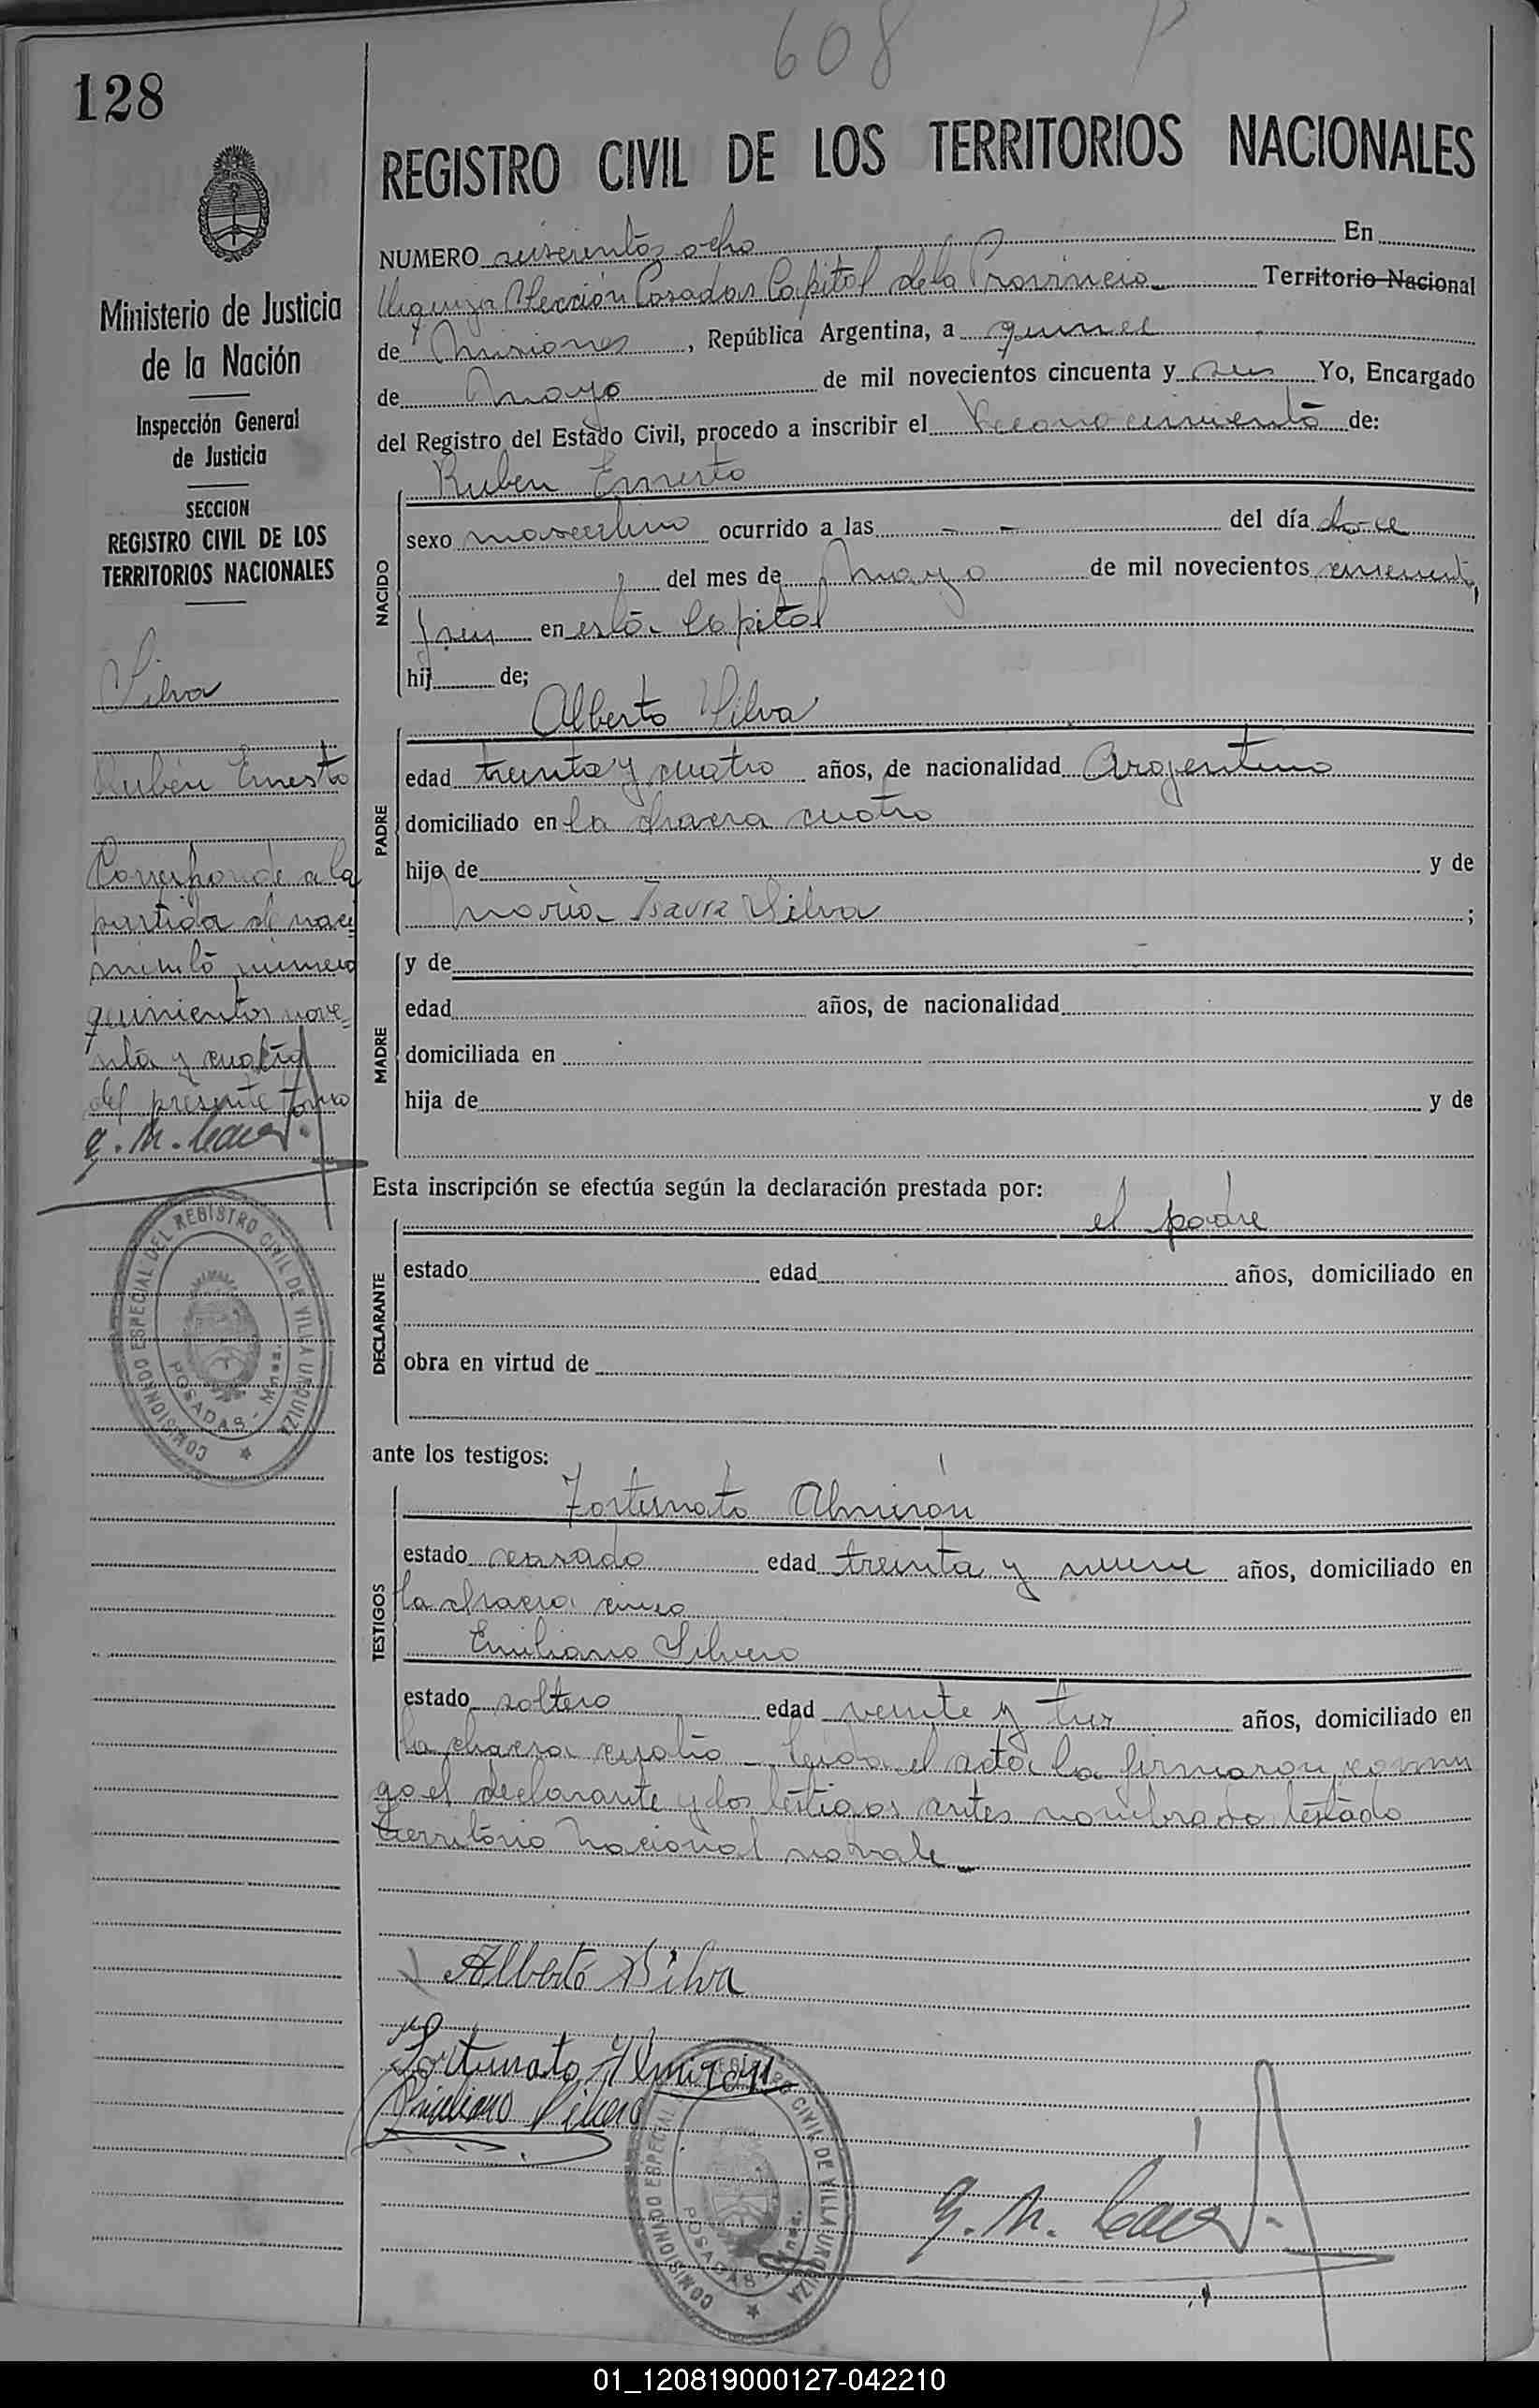 608
128
REGISTRO CIVIL DE LOS TERRITORIOS NACIONALES
NUMERO seiscientos ocho En
Urquiza Sección Posadas Capital de la Provincia Territorio Nacional
de Misiones, República Argentina, a quince
de Mayo de mil novecientos cincuenta y seis Yo, Encargado
del Registro del Estado Civil, procedo a inscribir el Reconocimiento de:
Ruben Ernesto
NACIDO
sexo masculino ocurrido a las - - del día doce
del mes de Mayo de mil novecientos cincuenta
y seis en esta Capital
hij de;
Alberto Silva
PADRE
edad treinta y cuatro años, de nacionalidad Argentino
domiciliado en la chacra cuatro
hijo de y de
Maria Isaura Silva ;
MADRE
y de
edad años, de nacionalidad
domiciliada en
hija de y de
Esta inscripción se efectúa según la declaración prestada por:
el padre
DECLARANTE
estado edad años, domiciliado en
obra en virtud de
ante los testigos:
Fortunato Almirón
TESTIGOS
estado casado edad treinta y nueve años, domiciliado en
la chacra cinco
Emiliano Silvero
estado soltero edad veinte y tres años, domiciliado en
la chacra cuatro - Leida el acta la firmaron conmi
go el declarante y los testigos antes nombrado testado
Territorio Nacional no vale -
Alberto Silva
Fortunato Almiron
Emiliano Silvero
COMISIONADO ESPECIAL CIVIL DE VILLA URQUIZA
POSADAS - Mnes.
G. M.
Ministerio de Justicia
de la Nación
Inspección General
de Justicia
SECCION
REGISTRO CIVIL DE LOS
TERRITORIOS NACIONALES
Silva
Rubén Ernesto
Corresponde a la
partida de naci
miento número
quinientos nove-
nta y cuatro
del presente tomo
G. M.
COMISIONADO ESPECIAL DEL REGISTRO CIVIL DE VILLA URQUIZA
POSADAS - Mnes.
01_120819000127-042210